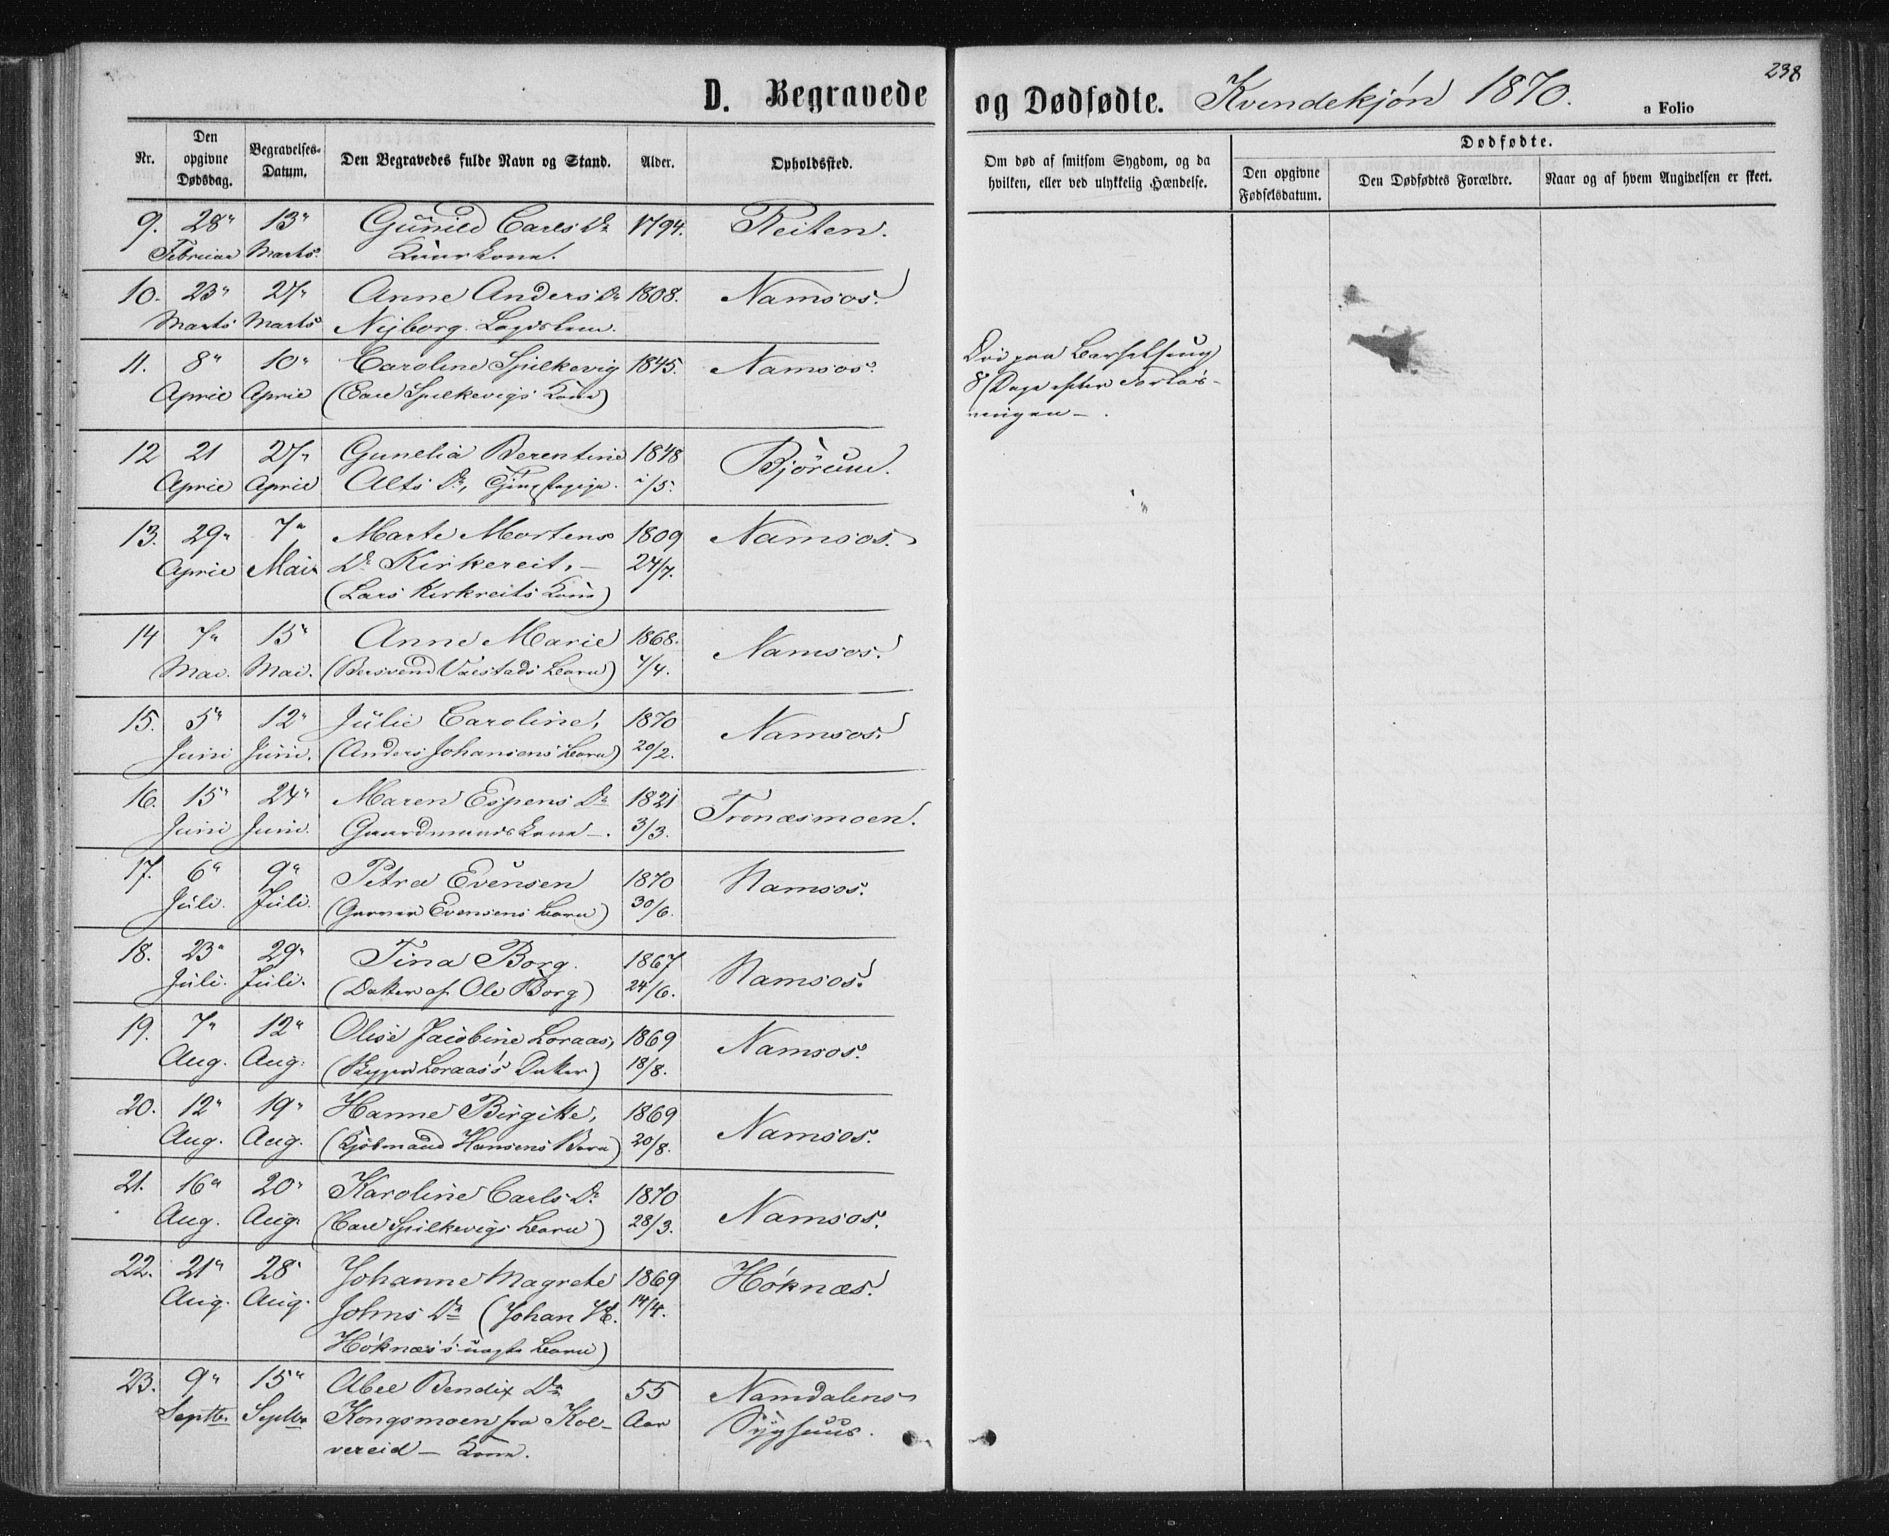 238
D. Begravede og Dødfødte. Kvindekjøn 1870. a Folio
Nr. Den opgivne Dødsdag. Begravelses-Datum. Den Begravedes fulde Navn og Stand. Alder. Opholdssted. Om død af smitsom Sygdom, og da hvilken, eller ved ulykkelig Hændelse. Dødfødte. Den opgivne Fødselsdatum. Den Dødfødtes Forældre. Naar og af hvem Angivelsen er skeet.
9. 28" 13" Gunild Carls Dr 1794. Reiten.
Februar Marts.
10. 23" 27" Anne Anders Dr 1808. Namsos.
Marts Marts Nyborg.
11. 8" 10" Caroline Spilkevig 1845. Namsos.
April April (Carl Spilkevigs Kone)
Død paa Barselseng
8 Dage efter Forløs-
ningen -.
12 21 27" Gunelia Berentine 1848 Bjørum.
April April Alts Dr, 1/5.
13. 29" 7" Marte Mortens 1809 Namsos.
April Mai Dr Kirkereit, - 24/7.
(Lars Kirkreits Kone)
14 7" 15" Anne Marie 1868. Namsos.
Mai. Mai. (Bersvend Barn) 7/4.
15. 5" 12" Julie Caroline, 1870 Namsos.
Juni Juni. (Anders Johansens Barn) 20/2.
16. 15" 24" Maren Espens Dr 1821 Tronæsmoen.
Juni Juni. Gaardmands Kone -. 3/3.
17. 6" 9" Petra Evensen 1870 Namsos.
Juli. Juli. (Garver Evensens Barn) 30/6.
18. 23" 29" Tina Borg. 1867 Namsos.
Juli. Juli. (Datter af Ole Borg) 24/6.
19. 7" 12" Olise Jacobine Loraas, 1869 Namsos.
Aug. Aug. (Skipper Loraas's Datter) 18/8.
20. 12" 19" Hanne Birgitte, 1869 Namsos.
Aug. Aug. (Kjøbmand Hansens Barn) 20/8.
21. 16" 20" Karoline Carls Dr 1870 Namsos.
Aug. Aug. (Carl Spilkevigs Barn) 28/3.
22. 21" 28" Johanne Magrete 1869 Høknæs.
Aug. Aug. Johns Dr (Johan H. 14/4.
Høknæs's uægte Barn)
23. 9" 15" Abel Bendix Dr 55 Namdalens
Septbr Septbr Kongsmoen fra Kol- Aar Sygehuus.
vereid - Kone.